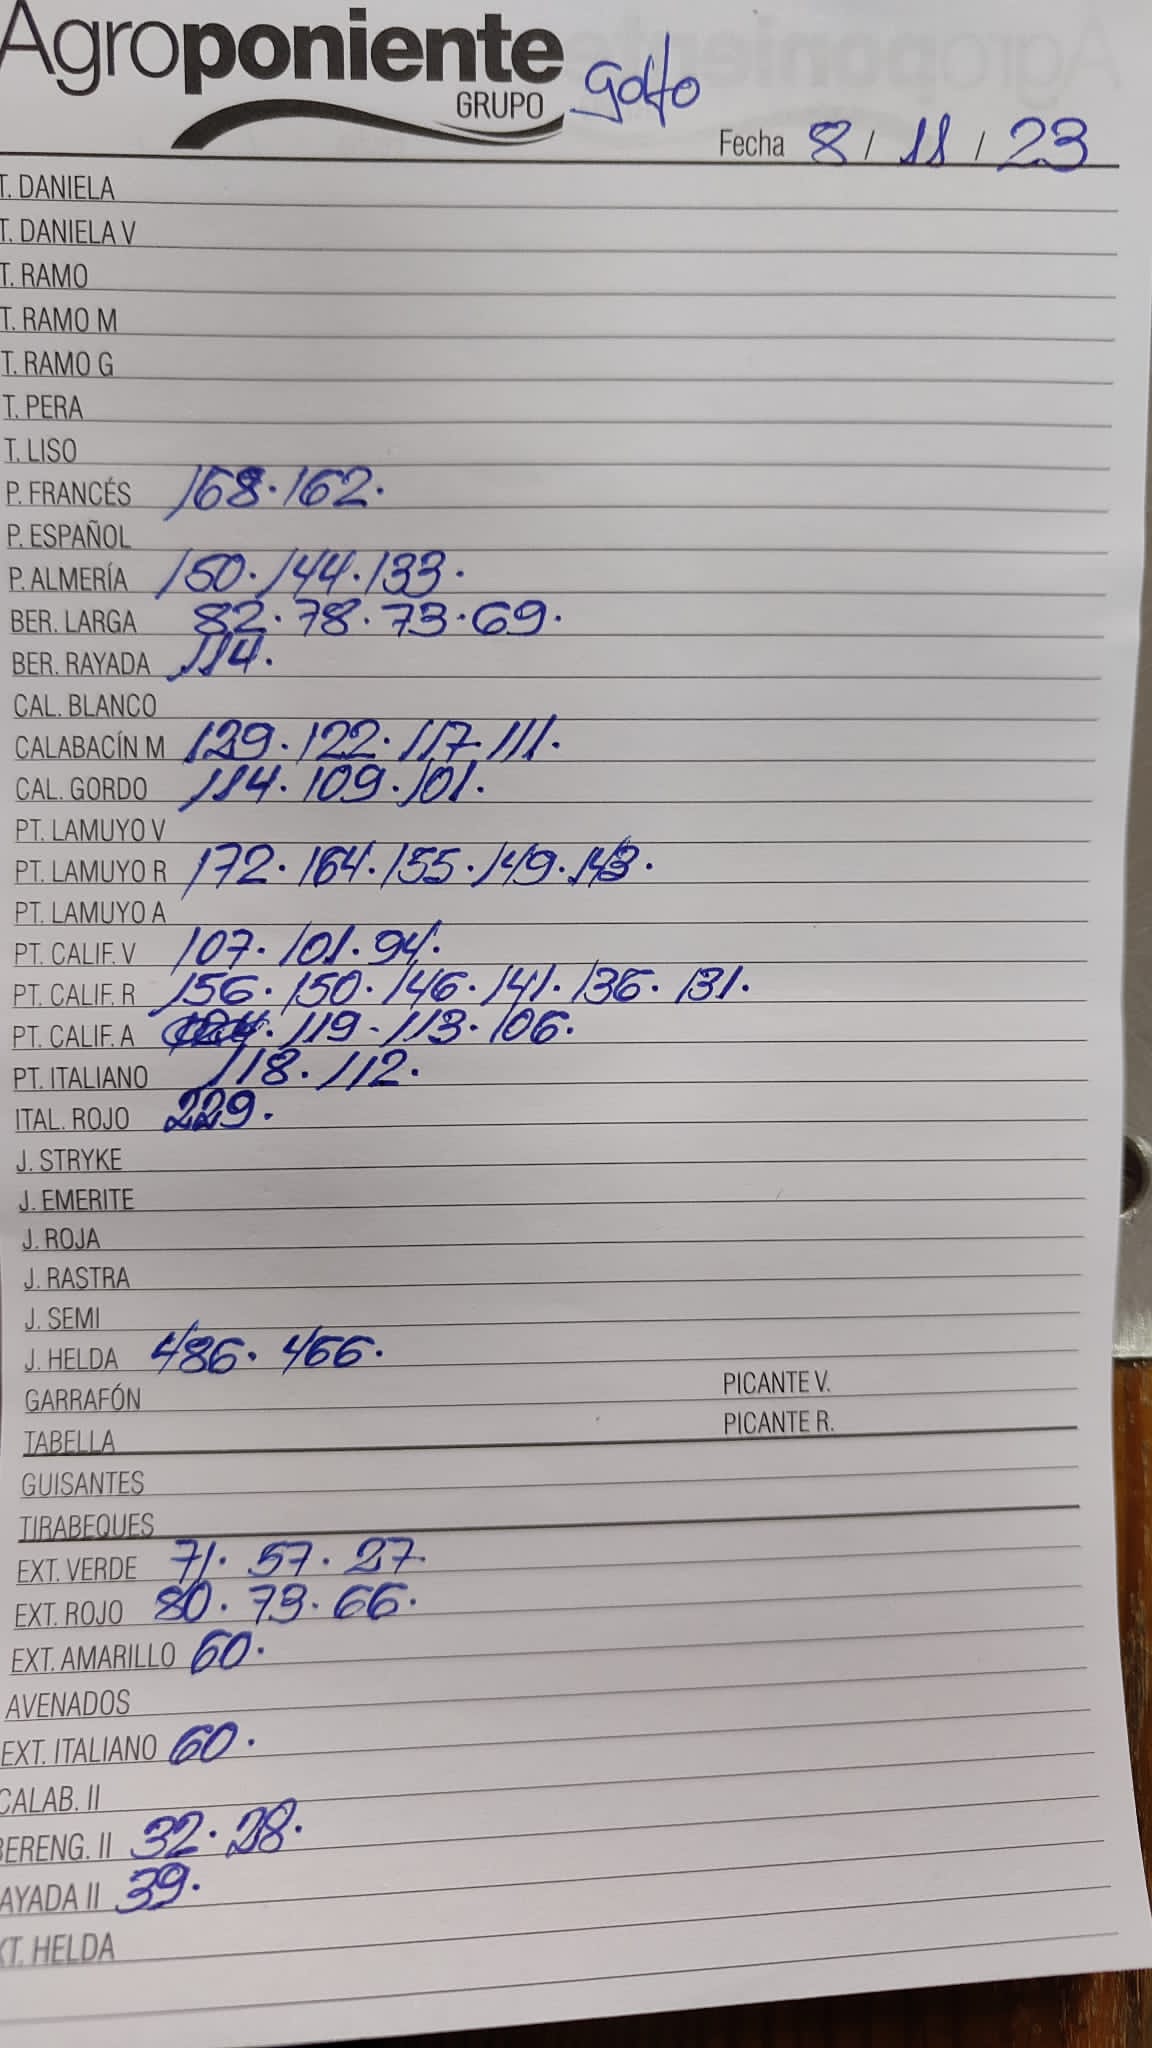 Agroponiente
GRUPO
golfo
Fecha 8 / 11 / 23
T. DANIELA
T. DANIELA V
T. RAMO
T. RAMO M
T. RAMO G
T. PERA
T. LISO
P. FRANCÉS 168. 162.
P. ESPAÑOL
P. ALMERÍA 150. 144. 133.
BER. LARGA 82. 78. 73. 69.
BER. RAYADA 114.
CAL. BLANCO
CALABACÍN M 129. 122. 117. 111.
CAL. GORDO 114. 109. 101.
PT. LAMUYO V
PT. LAMUYO R 172. 164. 155. 149. 143.
PT. LAMUYO A
PT. CALIF. V 107. 101. 94.
PT. CALIF. R 156. 150. 146. 141. 136. 131.
PT. CALIF. A 119 - 113. 106.
PT. ITALIANO 118. 112.
ITAL. ROJO 229.
J. STRYKE
J. EMERITE
J. ROJA
J. RASTRA
J. SEMI
J. HELDA 486. 466.
GARRAFÓN PICANTE V.
TABELLA PICANTE R.
GUISANTES
TIRABEQUES
EXT. VERDE 71. 57. 27
EXT. ROJO 80. 73. 66.
EXT. AMARILLO 60.
AVENADOS
EXT. ITALIANO 60.
CALAB. II
BERENG. II 32. 28.
AYADA II 39.
XT. HELDA